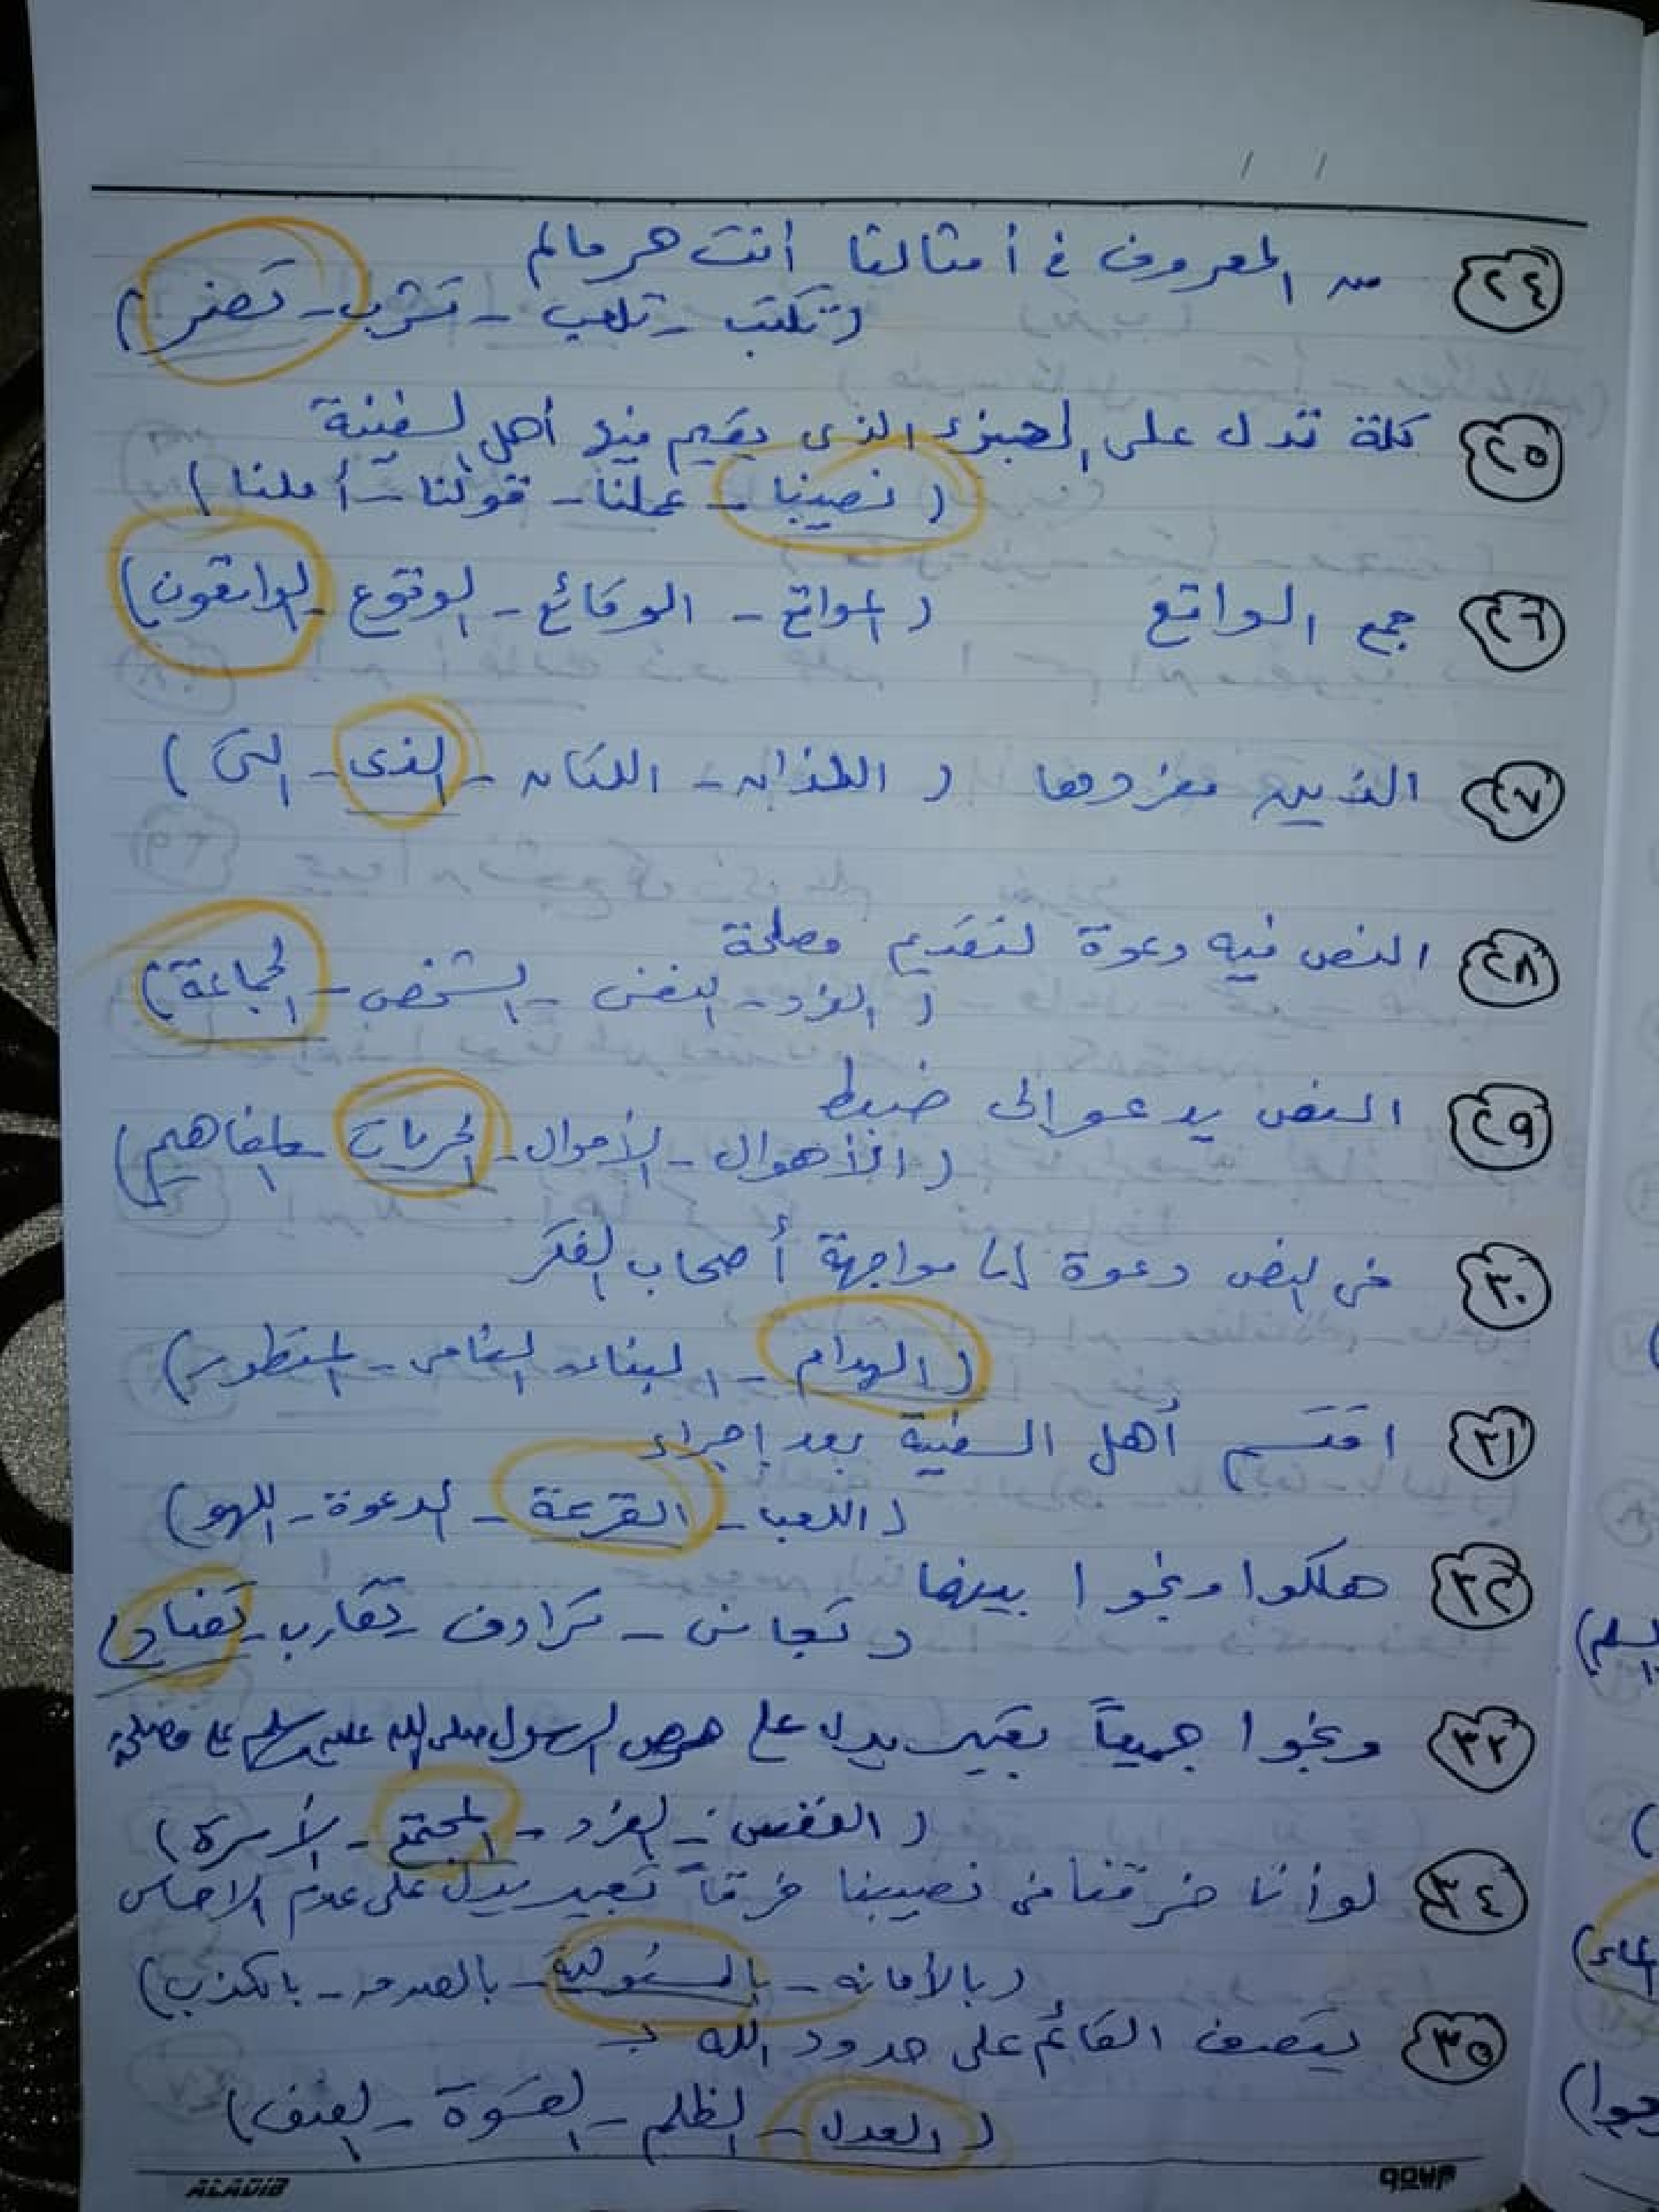 ٢٤ من المعروف في أمثالنا أنت حر مالم
(تكتب - تلعب - تشرب - تضر)
٢٥ كلمة تدل على الجزء الذى يقيم فيه أهل السفينة
(نصيبنا - عملنا - قولنا - أملنا)
٢٦ جمع الواقع (المواقع - الوقائع - الوقوع - الواقعون)
٢٧ الذين مفردها (اللذان - اللتان - الذى - التى)
٢٨ النص فيه دعوة لتقديم مصلحة
(الفرد - النفس - الشخص - الجماعة)
٢٩ النص يدعو إلى ضبط
(الأهوال - الأموال - الحريات - المفاهيم)
٣٠ فى النص دعوة إلى مواجهة أصحاب الفكر
(الهدام - البناء - النامى - المتطور)
٣١ اقتسم أهل السفينة بعد إجراء
(اللعب - القرعة - الدعوة - اللهو)
٣٢ هلكوا ونجوا بينهما
(تجانس - ترادف - تقارب - تضاد)
٣٣ ونجوا جميعاً تعبير يدل على حرص الرسول صلى الله عليه وسلم على مصلحة
(النفس - الفرد - المجتمع - الأسرة)
٣٤ لو أنا خرقنا فى نصيبنا خرقاً تعبير يدل على عدم الاحساس
(بالأمانه - بالمسئولية - بالصدق - بالكذب)
٣٥ يتصف القائم على حدود الله بـ
(العدل - الظلم - القسوة - العنف)
ALADIB